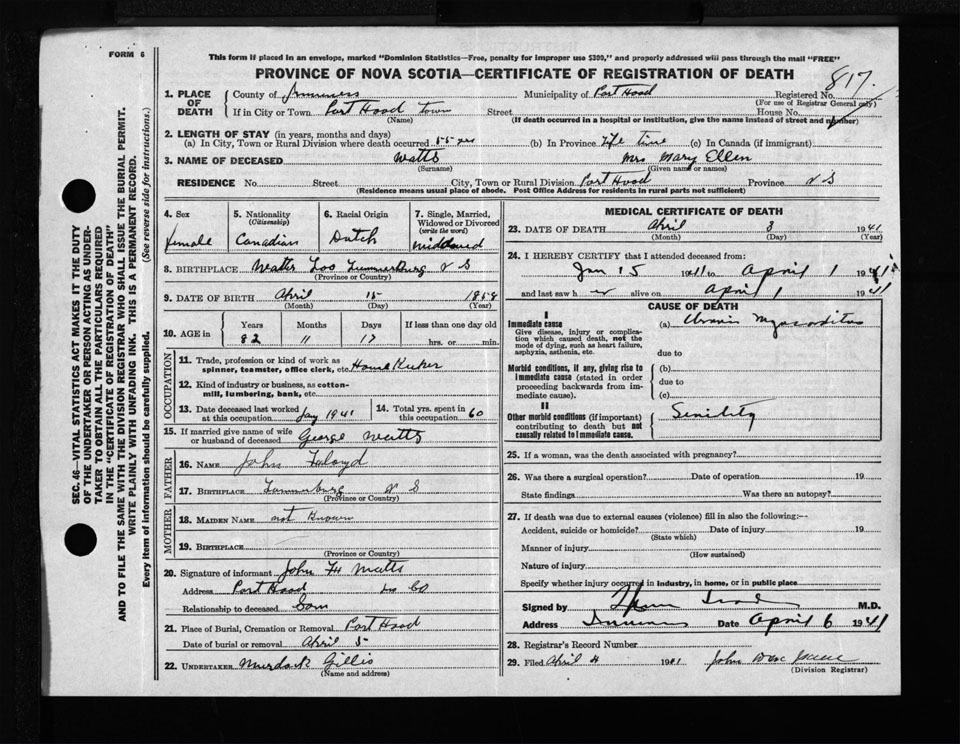 FORM 6
This form if placed in an envelope, marked "Dominion Statistics—Free, penalty for improper use $300," and properly addressed will pass through the mail "FREE"
PROVINCE OF NOVA SCOTIA—CERTIFICATE OF REGISTRATION OF DEATH
817.
SEC. 46—VITAL STATISTICS ACT MAKES IT THE DUTY
OF THE UNDERTAKER OR PERSON ACTING AS UNDER-
TAKER TO OBTAIN ALL THE PARTICULARS REQUIRED
IN THE "CERTIFICATE OF REGISTRATION OF DEATH"
AND TO FILE THE SAME WITH THE DIVISION REGISTRAR WHO SHALL ISSUE THE BURIAL PERMIT.
WRITE PLAINLY WITH UNFADING INK. THIS IS A PERMANENT RECORD.
Every item of information should be carefully supplied. (See reverse side for instructions.)
1. PLACE OF DEATH
County of Inverness Municipality of Port Hood Registered No.
(For use of Registrar General only)
If in City or Town Port Hood Town Street House No.
(Name) (If death occurred in a hospital or institution, give the name instead of street and number)
2. LENGTH OF STAY (in years, months and days)
(a) In City, Town or Rural Division where death occurred 55 yrs (b) In Province Life time (c) In Canada (if immigrant)
3. NAME OF DECEASED Watts Mrs Mary Ellen
(Surname) (Given name or names)
RESIDENCE No Street City, Town or Rural Division Port Hood Province N S
(Residence means usual place of abode. Post Office Address for residents in rural parts not sufficient)
4. Sex
female
5. Nationality
(Citizenship)
Canadian
6. Racial Origin
Dutch
7. Single, Married,
Widowed or Divorced
(write the word)
widowed
8. BIRTHPLACE Watter Loo Lunnenburg N S
(Province or Country)
9. DATE OF BIRTH April 15 1858
(Month) (Day) (Year)
10. AGE in Years Months Days If less than one day old
82 11 17 hrs. or min.
OCCUPATION
11. Trade, profession or kind of work as
spinner, teamster, office clerk, etc. Home Keeper
12. Kind of industry or business, as cotton-
mill, lumbering, bank, etc.
13. Date deceased last worked
at this occupation Jay 1941
14. Total yrs. spent in
this occupation 60
15. If married give name of wife
or husband of deceased George Watts
FATHER
16. NAME John Floyd
17. BIRTHPLACE N S
(Province or Country)
MOTHER
18. MAIDEN NAME not Known
19. BIRTHPLACE
(Province or Country)
20. Signature of informant John Watts
Address Port Hood Co
Relationship to deceased Son
21. Place of Burial, Cremation or Removal Port Hood
Date of burial or removal April 5
22. UNDERTAKER Murdock Gillis
(Name and address)
MEDICAL CERTIFICATE OF DEATH
23. DATE OF DEATH April 3 1941
(Month) (Day) (Year)
24. I HEREBY CERTIFY that I attended deceased from:
Jan 15 1941 to April 1 1941
and last saw h er alive on April 1 1941
CAUSE OF DEATH
I
Immediate cause
Give disease, injury or complica-
tion which caused death, not the
mode of dying, such as heart failure,
asphyxia, asthenia, etc.
(a) Myocarditis
due to
Morbid conditions, if any, giving rise to
immediate cause (stated in order
proceeding backwards from im-
mediate cause).
(b)
due to
(c)
II
Other morbid conditions (if important)
contributing to death but not
causally related to immediate cause.
Senility
25. If a woman, was the death associated with pregnancy?
26. Was there a surgical operation? Date of operation 19
State findings Was there an autopsy?
27. If death was due to external causes (violence) fill in also the following:—
Accident, suicide or homicide? Date of injury 19
(State which)
Manner of injury
(How sustained)
Nature of injury
Specify whether injury occurred in industry, in home, or in public place
Signed by M.D.
Address Date April 6 1941
28. Registrar's Record Number
29. Filed April 4 1941 John
(Division Registrar)